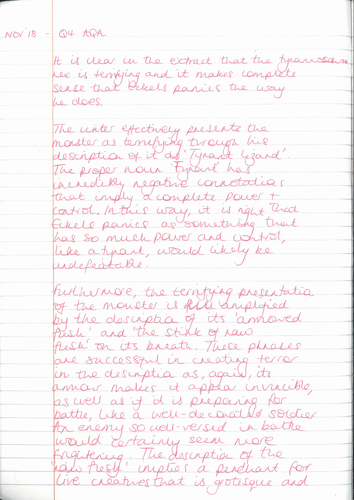 Nov 18 - Q4 AQA
It is clear in the extract that the tyrannosaurus
rex is terrifying and it makes complete
sense that Eckels panics the way
he does.
The writer effectively presents the
monster as terrifying through his
description of it as 'Tyrant Lizard'.
The proper noun 'Tyrant' has
incredibly negative connotations
that imply a complete power +
control. In this way, it is right that
Eckels panics as something that
has so much power and control,
like a tyrant, would likely be
undefeatable.
Furthermore, the terrifying presentatio
of the monster is amplified
by the description of its 'armoured
flesh' and 'the stink of raw
flesh' on its breath. These phrases
are successful in creating terror
in the description as, again, its
armour makes it appear invincible,
as well as if it is preparing for
battle, like a well-decorated soldier.
An enemy so well-versed in battle
would certainly seem more
frightening. The description of the
'raw flesh' implies a penchant for
live creatures that is grotesque and